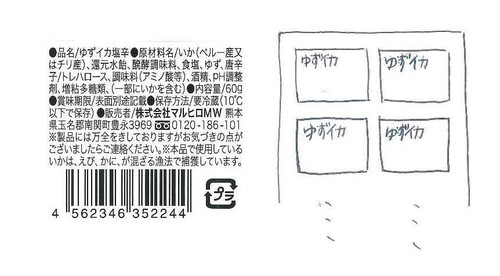 ●品名/ゆずイカ塩辛●原材料名/いか(ペルー産又
はチリ産)、還元水飴、醗酵調味料、食塩、ゆず、唐辛
子/トレハロース、調味料(アミノ酸等)、酒精、PH調整
剤、増粘多糖類、(一部にいかを含む)●内容量/60g
●賞味期限/表面別途記載●保存方法/要冷蔵(10℃
以下で保存)●販売者/株式会社マルヒロMW 熊本
県玉名郡南関町豊永3969 0120-186-101
※製品には万全をきしておりますがお気づきの点が
ございましたらご連絡ください。※本品で使用している
いかは、えび、かに、が混ざる漁法で捕獲しています。
プラ
4 562346 352244
ゆずイカ ゆずイカ
ゆずイカ ゆずイカ